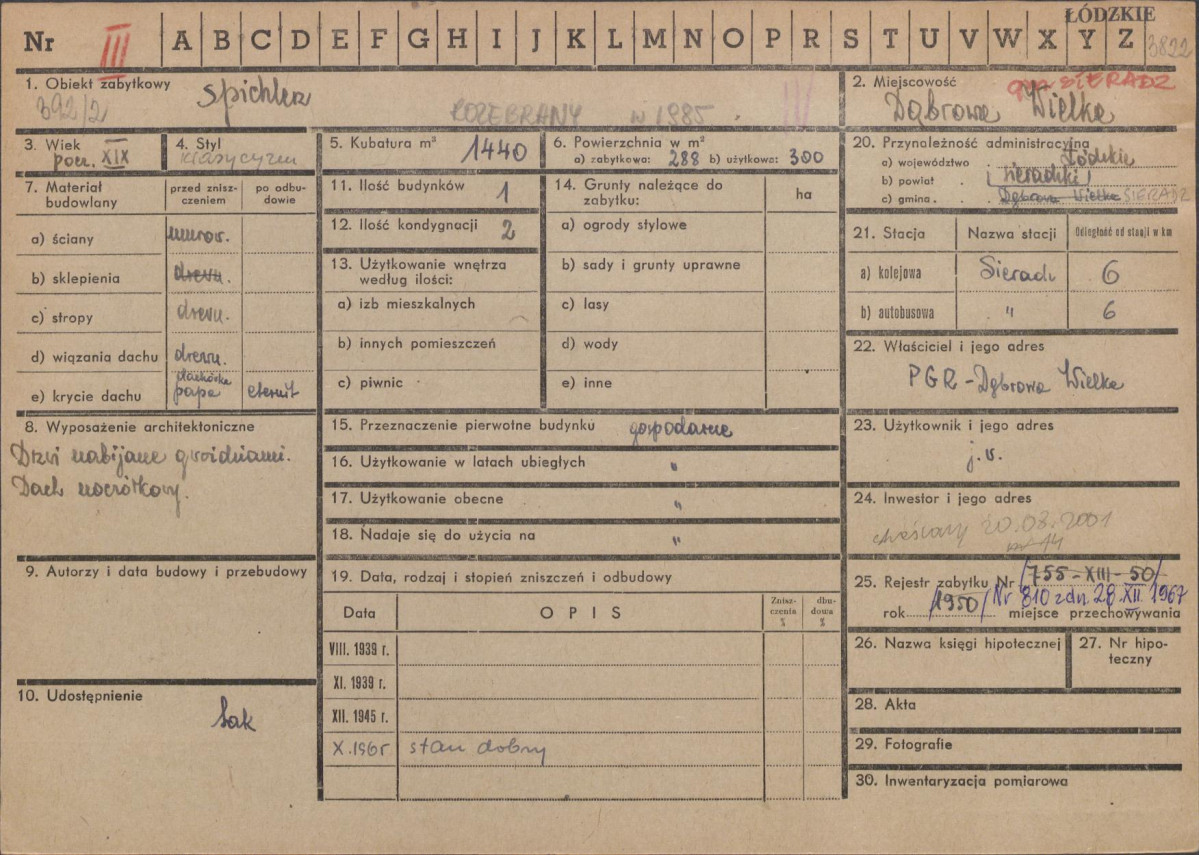 ŁÓDZKIE
Nr III A B C D E F G H I J K L M N O P R S T U V W X Y Z 3822
1. Obiekt zabytkowy Spichlerz
392/2 ROZEBRANY w 1985 III
2. Miejscowość gm SIERADZ
Dąbrowa Wielka
3. Wiek
pocz. XIX
4. Styl
klasycyzm
5. Kubatura m³ 1440
6. Powierzchnia w m²
a) zabytkowa: 288 b) użytkowa: 300
20. Przynależność administracyjna
a) województwo Łódzkie
b) powiat sieradzki
c) gmina Dąbrowa Wielka SIERADZ
7. Materiał budowlany
przed znisz-
czeniem
po odbu-
dowie
a) ściany murow.
b) sklepienia drewn.
c) stropy drewn.
d) wiązania dachu drewn.
e) krycie dachu dachówka papa eternit
11. Ilość budynków 1
12. Ilość kondygnacji 2
13. Użytkowanie wnętrza
według ilości:
a) izb mieszkalnych
b) innych pomieszczeń
c) piwnic
14. Grunty należące do
zabytku:
ha
a) ogrody stylowe
b) sady i grunty uprawne
c) lasy
d) wody
e) inne
21. Stacja Nazwa stacji Odległość od stacji w km
a) kolejowa Sieradz 6
b) autobusowa " 6
22. Właściciel i jego adres
PGR - Dąbrowa Wielka
8. Wyposażenie architektoniczne
Drzwi nabijane gwoździami.
Dach naczółkowy.
15. Przeznaczenie pierwotne budynku gospodarcze
16. Użytkowanie w latach ubiegłych "
17. Użytkowanie obecne "
18. Nadaje się do użycia na "
23. Użytkownik i jego adres
j.w.
24. Inwestor i jego adres
skreślony 20.08.2001
9. Autorzy i data budowy i przebudowy
19. Data, rodzaj i stopień zniszczeń i odbudowy
Data OPIS
Znisz-
czenia
%
dbu-
dowa
%
VIII. 1939 r.
XI. 1939 r.
XII. 1945 r.
X.1965 stan dobry
25. Rejestr zabytku Nr /755-XIII-50/
rok /1950/ Nr 810 z dn. 28.XII.1967
miejsce przechowywania
26. Nazwa księgi hipotecznej
27. Nr hipo-
teczny
10. Udostępnienie
tak
28. Akta
29. Fotografie
30. Inwentaryzacja pomiarowa